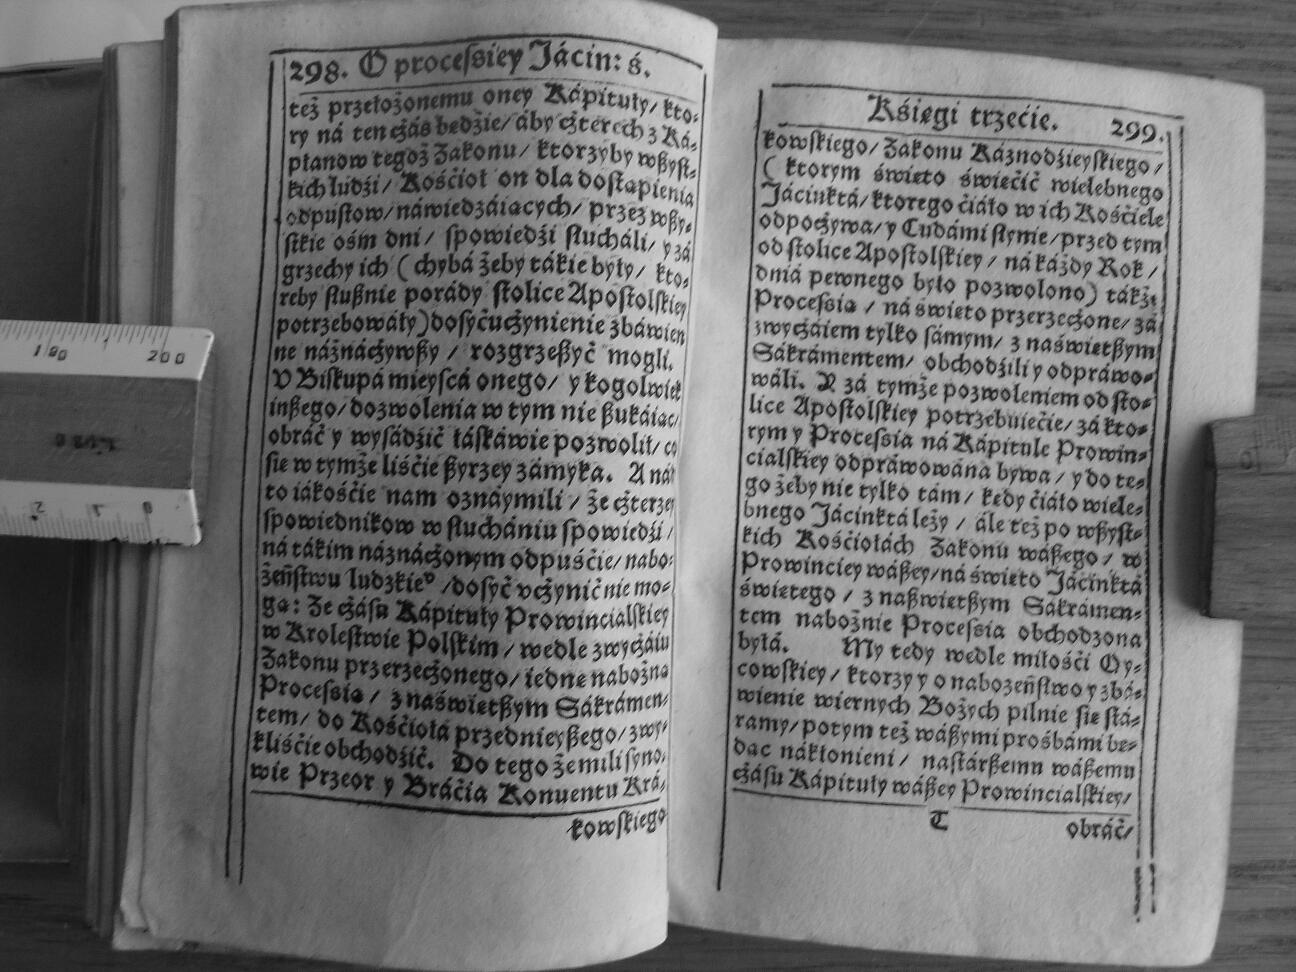 298. O procesſiey Jácin: ś.
też przełożonemu oney Kápituły/ kto-
ry ná ten cżás będźie/ áby cżterech z Ká-
płanow tegoż Zakonu/ ktorzyby wßyſt-
kich ludźi/ Kośćioł on dla doſtąpienia
odpuſtow/ náwiedzáiących/ przez wßy-
ſtkie ośm dni/ ſpowiedźi ſłucháli/ y zá
grzechy ich ( chybá żeby tákie były/ kto-
reby ſłußnie porády ſtolice Apoſtolſkiey
potrzebowáły) dosyć ucżynienie zbáwien
ne náznácżywßy / rozgrzeßyć mogli.
V Biſkupá mieyſcá onego/ y kogolwiek
inßego/ dozwolenia w tym nie ßukáiąc/
obráć y wyſádźić łáſkáwie pozwolił/ co
ſię w tymże liśćie ßyrzey zámyka. A nád
to iákośćie nam oznáymili / że cżterzey
ſpowiednikow w ſłuchániu ſpowiedźi /
ná tákim náznácżonym odpuśćie/ nabo-
żeńſtwu ludzkieº /dosyć vcżynić nie mo-
gą: Że cżáſu Kápituły Prowincialſkiey
w Kroleſtwie Polſkim / wedle zwycżáiu
Zakonu przerzecżonego/ iednę nabożną
Procesſią / z naświętßym Sákrámen-
tem/ do Kośćiołá przednieyßego/ zwy-
kliśćie obchodźić. Do tego że mili ſyno-
wie Przeor y Bráćia Konuentu Krá-
kowſkiego
Kśięgi trzećie. 299.
kowſkiego/ Zakonu Káznodźieyſkiego /
( ktorym święto święćić wielebnego
Jácinktá/ ktorego ćiáło w ich Kośćiele
odpocżywa/ y Cudámi ſłynie/ przed tym
od ſtolice Apoſtolſkiey / ná káżdy Rok /
dniá pewnego było pozwolono) tákże
Procesſią / ná święto przerzecżone/ zá
zwycżáiem tylko ſámym/ z naświętßym
Sákrámentem/ obchodźili y odpráwo-
wáli. Y zá tymże pozwoleniem od ſto-
lice Apoſtolſkiey potrzebuiećie/ zá kto-
rym y Procesſia ná Kápitule Prowin-
cialſkiey odpráwowána bywa/ y do te-
go żeby nie tylko tám/ kędy ćiáło wiele-
bnego Jácinktá leży / ále też po wßyſt-
kich Kośćiołách Zakonu wáßego/ w
Prowinciey wáßey/ ná święto Jácinktá
świętego / z naświętßym Sákrámen-
tem nabożnie Procesſia obchodzona
byłá. My tedy wedle miłośći Oy-
cowſkiey/ ktorzy y o nabożeńſtwo y zbá-
wienie wiernych Bożych pilnie ſię ſtá-
ramy/ potym też wáßymi prośbámi bę-
dąc nákłonieni/ naſtárßemu wáßemu
cżáſu Kápituły wáßey Prowincialſkiey/
T obráć/
190 200
2 1 0